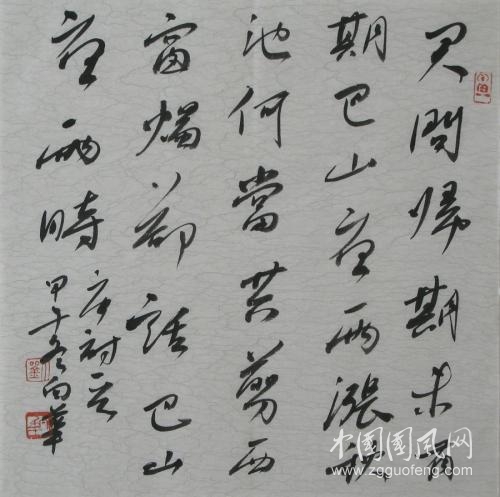 君問歸期未有
期巴山夜雨漲秋
池何當共剪西
窗燭却話巴山
夜雨時
唐詩
甲午冬向華
中國國风网
www.zgguofeng.com